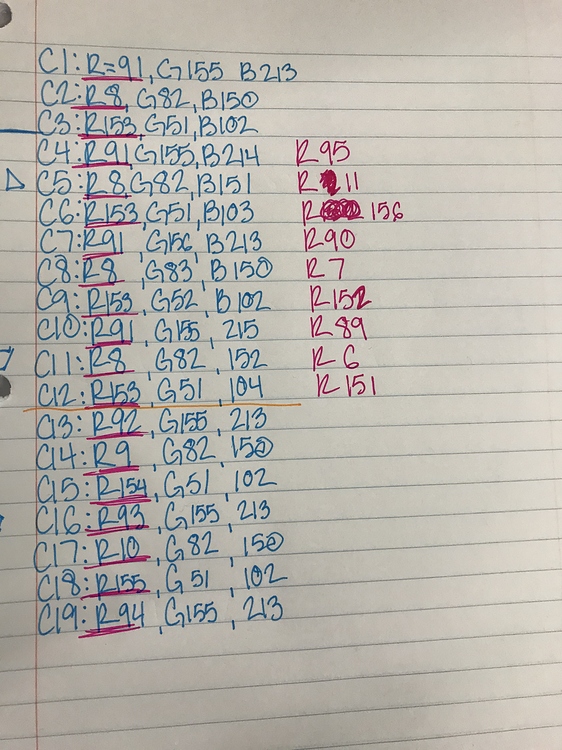 C1: R=91, G155 B213
C2: R8, G82, B150
C3: R153, G51, B102
C4: R91, G155, B214 R95
C5: R8, G82, B151 R 11
C6: R153, G51, B103 R 156
C7: R91, G156, B213 R90
C8: R8, G83, B150 R7
C9: R153, G52, B102 R152
C10: R91, G155, 215 R89
C11: R8, G82, 152 R6
C12: R153, G51, 104 R151
C13: R92, G155, 213
C14: R9, G82, 150
C15: R154, G51, 102
C16: R93, G155, 213
C17: R10, G82, 150
C18: R155, G51, 102
C19: R94, G155, 213